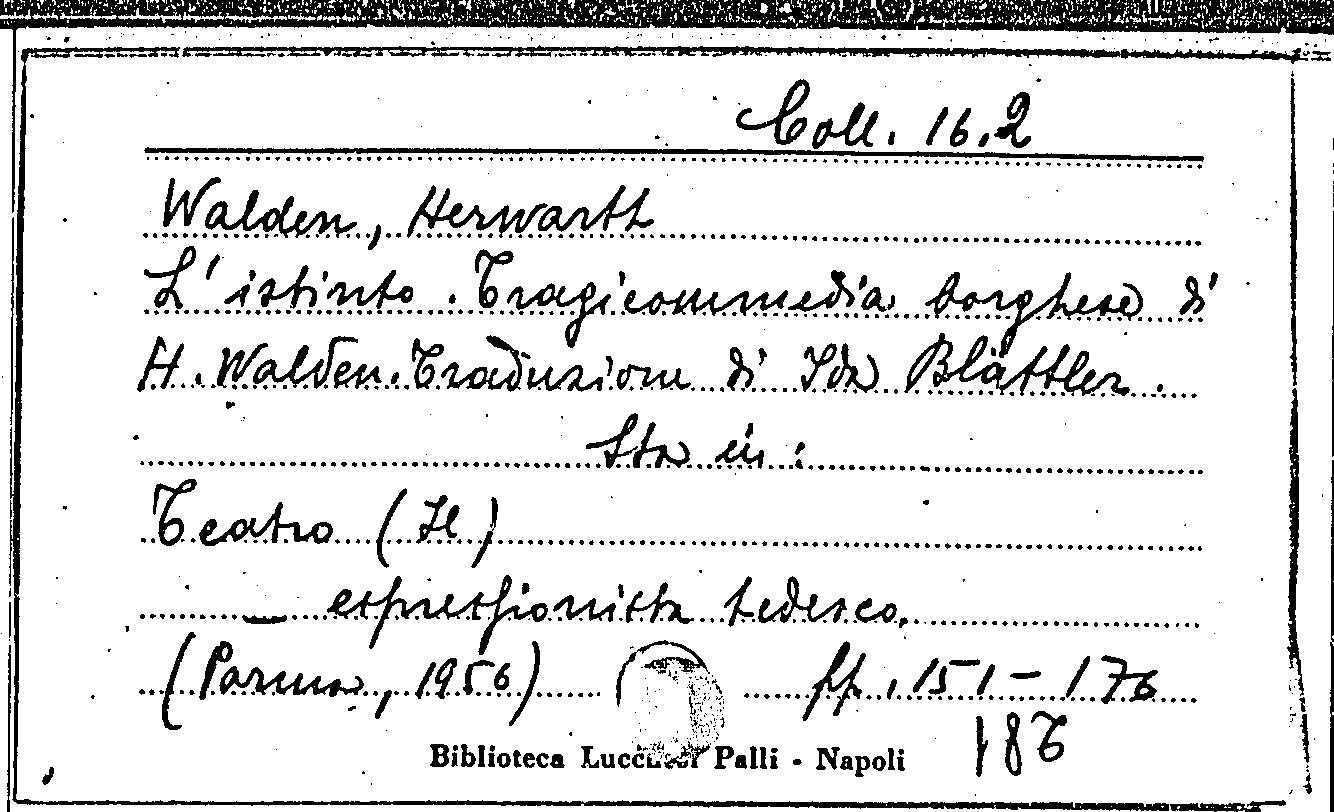 Coll. 16.2
Walden, Herwarth
L'istinto. Tragicommedia borghese di
H. Walden. Traduzione di Ida Blättler.
Sta in:
Teatro (Il)
— espressionista tedesco.
(Parma, 1956) pp. 151-176
Biblioteca Lucchesi Palli - Napoli